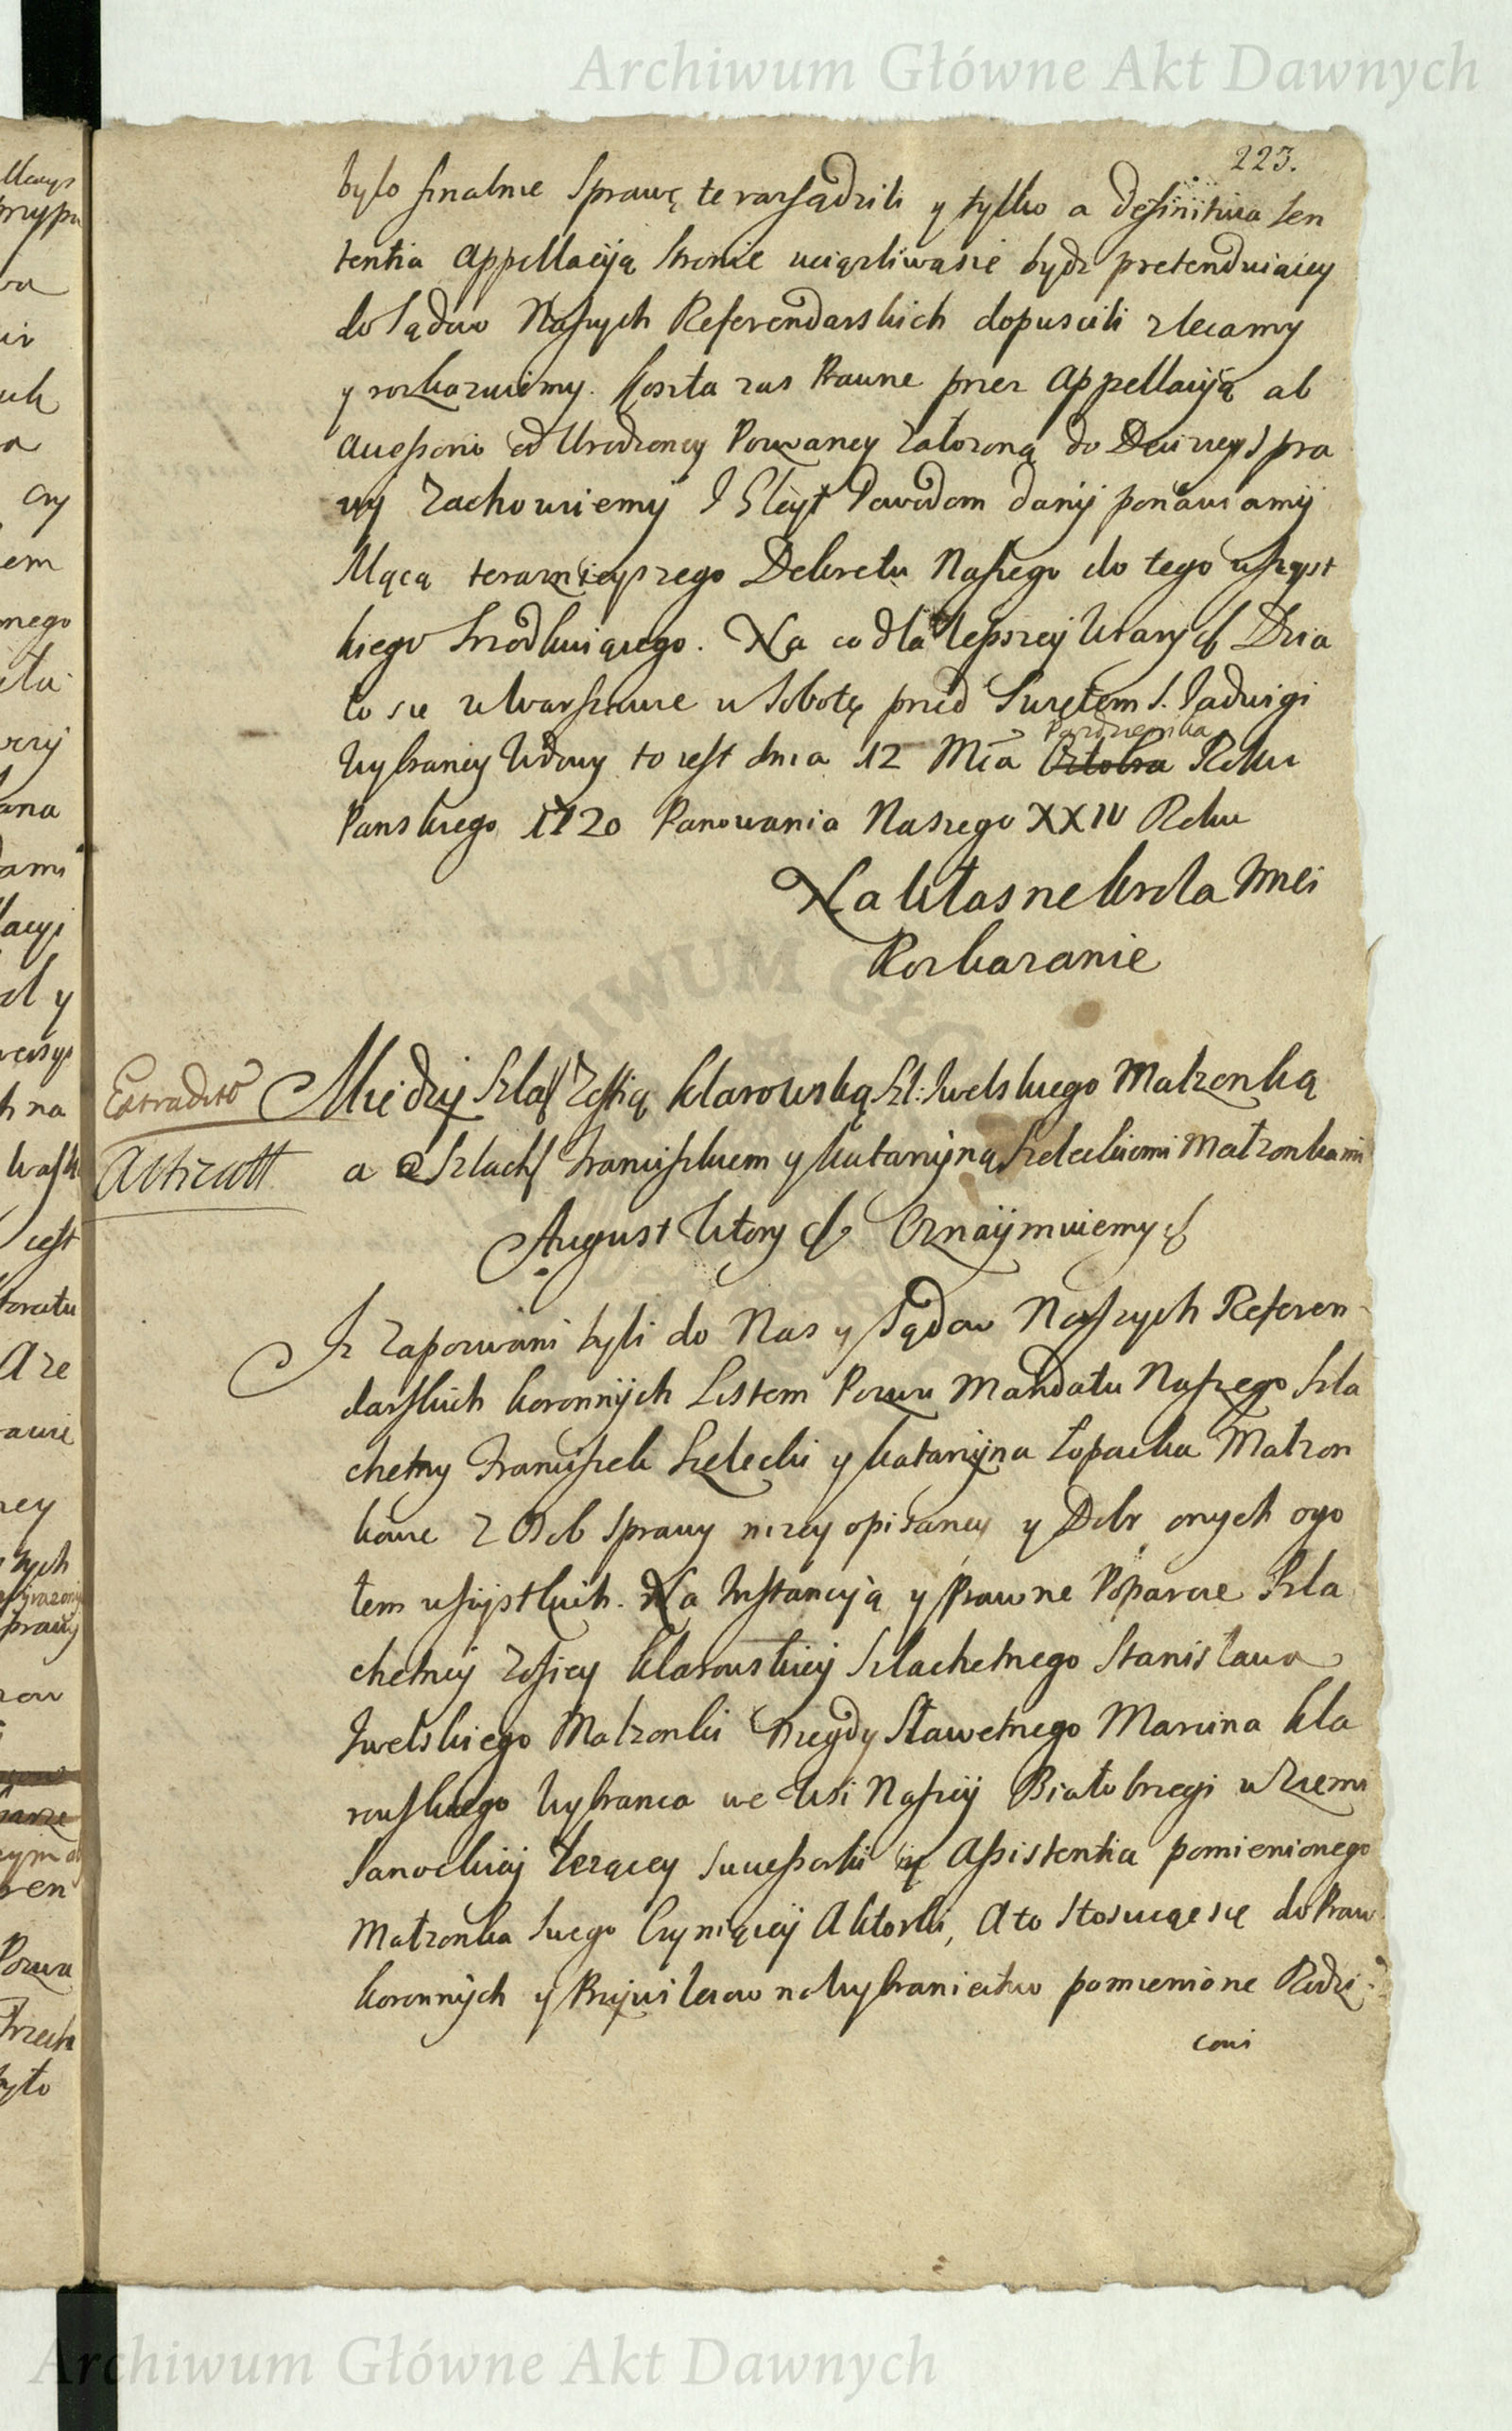 Archiwum Główne Akt Dawnych
223.
było finalnie Sprawę te rozsądzili y tylko a definitiva Sen
tentia Appellacyią Stronie uciązliwasie bydz pretenduiącey
do Sądow Naszych Referendarskich dopuscili zlecamy
y rozkazuiemy. Koszta zas Prawne przez Appellacyią ab
accessorio od Urodzoney Pozwaney załozoną do Decizyey Spra
wy zachowuiemy I Gleyt Powodom dany ponawiamy
Mocą teraznieyszego Dekretu Naszego do tego wszyst
kiego Srzodkuiącego. Na co dla lepszey Wiary & Dzia
ło się w Warszawie w Sobotę przed Swiętem S. Jadwigi
Października
Wybraney Wdowy to iest dnia 12 Mca Oktobra Roku
Panskiego 1720 Panowania Naszego XXIV Roku
Na Własne Krola Jmci
Rozkazanie
Extradito
Acticatt
Miedzy Szlach Zofią Klarowską Sl: Iwelskiego Małzonką
a Szlach Franciszkiem y Katarzyną Szeleckiemi Małzonkami
August Wtory & Oznaymuiemy &
Iz Zapozwani byli do Nas y Sądow Naszych Referen-
darskich Koronnych Listem Pozwu Mandatu Naszego Szla
chetny Franciszek Szelecki y Katarzyna Łopacka Małzon
kowie z Osob Sprawy nizey opisaney y Dobr onych ogo
łem wszystkich. Na Instancyią y Prawne Poparcie Szla
chetney Zofiey Klarowskiey Szlachetnego Stanisława
Iwelskiego Małzonki Niegdy Sławetnego Marcina Kla
rowskiego Wybranca we Wsi Naszey Białobrzegi w Ziemi
Sanockiey Lezącey Successorki w Assistentia pomienionego
Małzonka Swego Czyniącey Aktorki, A to Stosuiąc się do Praw
Koronnych y Przywileiow na Wybraniectwo pomienione Rodzi-
cowi
Archiwum Główne Akt Dawnych